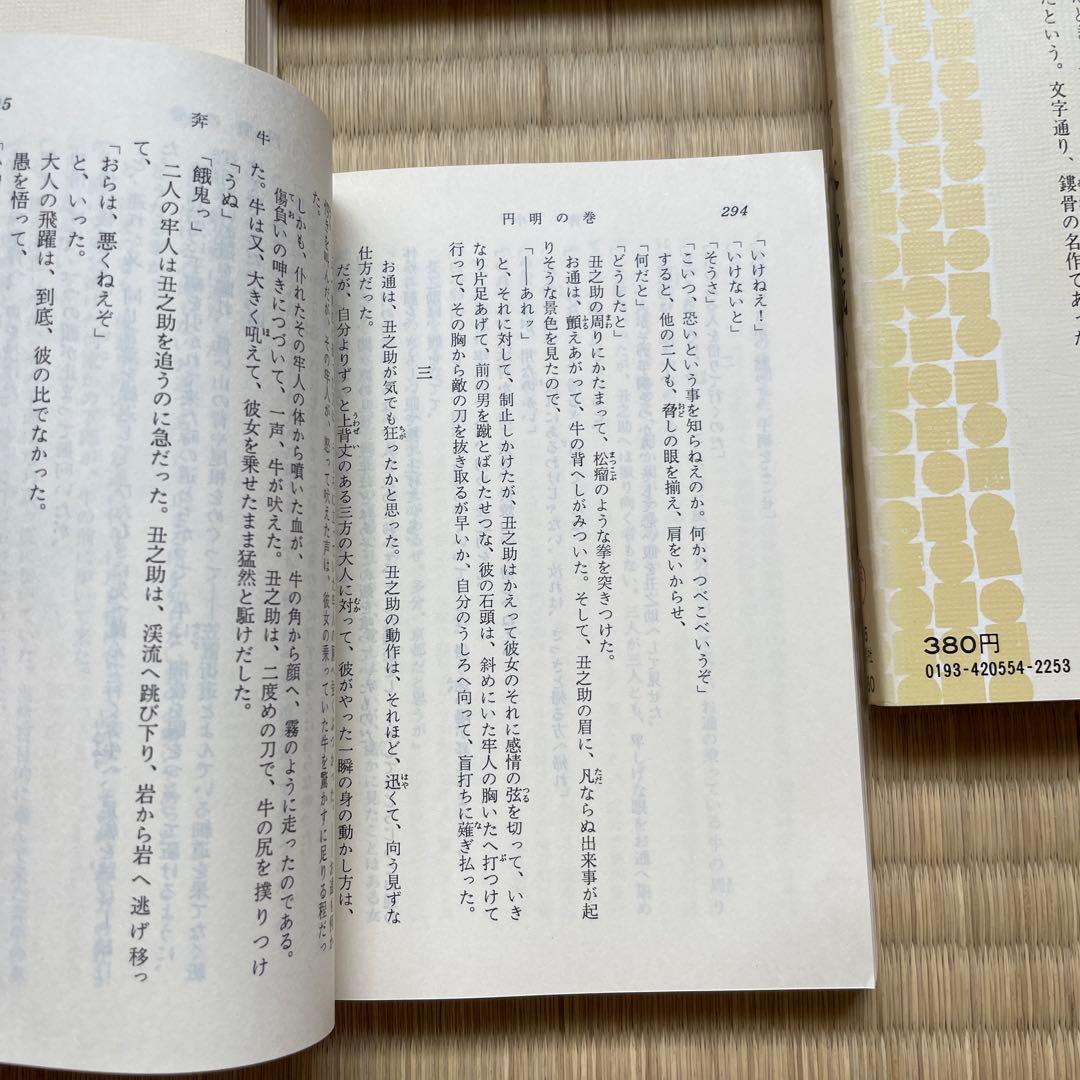 294
円明の巻
「いけねえ！」
「いけないと」
「そうさ」
「こいつ、恐いという事を知らねえのか。何か、つべこべいうぞ」
すると、他の二人も、脅しの眼を揃え、肩をいからせ、
「何だと」
「どうしたと」
丑之助の周りにかたまって、松瘤のような拳を突きつけた。
お通は、顫えあがって、牛の背へしがみついた。そして、丑之助の眉に、凡ならぬ出来事が起
りそうな景色を見たので、
「――あれッ」
と、それに対して、制止しかけたが、丑之助はかえって彼女のそれに感情の弦を切って、いき
なり片足あげて、前の男を蹴とばしたせつな、彼の石頭は、斜めにいた牢人の胸いたへ打つけて
行って、その胸から敵の刀を抜き取るが早いか、自分のうしろへ向って、盲打ちに薙ぎ払った。
三
お通は、丑之助が気でも狂ったかと思った。丑之助の動作は、それほど、迅くて、向う見ずな
仕方だった。
だが、自分よりずっと上背丈のある三方の大人に対って、彼がやった一瞬の身の動かし方は、
奔牛
た。
しかも、仆れたその牢人の体から噴いた血が、牛の角から顔へ、霧のように走ったのである。
傷負いの呻きにつづいて、一声、牛が吠えた。丑之助は、二度めの刀で、牛の尻を撲りつけ
た。牛は又、大きく吼えて、彼女を乗せたまま猛然と駈けだした。
「うぬ」
「餓鬼っ」
二人の牢人は丑之助を追うのに急だった。丑之助は、渓流へ跳び下り、岩から岩へ逃げ移っ
て、
「おらは、悪くねえぞ」
と、いった。
大人の飛躍は、到底、彼の比でなかった。
愚を悟って、
だという。文字通り、鏤骨の名作であった
380円
0193-420554-2253